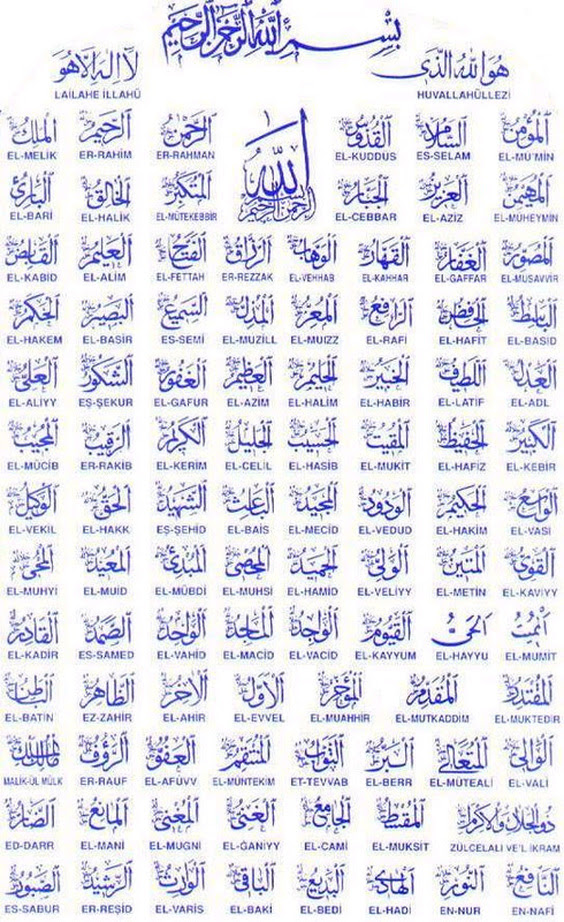 بسم الله الرحمن الرحيم
هو الله الذى لا اله الا هو
LAILAHE İLLAHÜ HUVALLAHÜLLEZİ
المؤمن السلام القدوس الله الرحمن الرحيم الملك
EL-MELİK ER-RAHİM ER-RAHMAN EL-KUDDUS ES-SELAM EL-MU'MİN
الرحمن الرحيم
المهيمن العزيز الجبار المتكبر الخالق البارئ
EL-BARİ EL-HALİK EL-MÜTEKEBBİR EL-CEBBAR EL-AZİZ EL-MÜHEYMİN
المصور الغفار القهار الوهاب الرزاق الفتاح العليم القابض
EL-KABİD EL-ALİM EL-FETTAH ER-REZZAK EL-VEHHAB EL-KAHHAR EL-GAFFAR EL-MUSAVVİR
الباسط الخافض الرافع المعز المذل السميع البصير الحكم
EL-HAKEM EL-BASİR ES-SEMİ EL-MUZİLL EL-MUIZZ EL-RAFİ EL-HAFİT EL-BASİD
العدل اللطيف الخبير الحليم العظيم الغفور الشكور العلى
EL-ALİYY EŞ-ŞEKUR EL-GAFUR EL-AZİM EL-HALİM EL-HABİR EL-LATİF EL-ADL
الكبير الحفيظ المقيت الحسيب الجليل الكريم الرقيب المجيب
EL-MÜCİB ER-RAKİB EL-KERİM EL-CELİL EL-HASİB EL-MUKİT EL-HAFİZ EL-KEBİR
الواسع الحكيم الودود المجيد الباعث الشهيد الحق الوكيل
EL-VEKİL EL-HAKK EŞ-ŞEHİD EL-BAİS EL-MECİD EL-VEDUD EL-HAKİM EL-VASİ
القوى المتين الولى الحميد المحصى المبدئ المعيد المحيى
EL-MUHYİ EL-MUİD EL-MÜBDİ EL-MUHSİ EL-HAMİD EL-VELİYY EL-METİN EL-KAVİYY
المميت الحى القيوم الواجد الماجد الواحد الصمد القادر
EL-KADİR ES-SAMED EL-VAHİD EL-MACİD EL-VACİD EL-KAYYUM EL-HAYYU EL-MUMİT
المقتدر المقدم المؤخر الاول الاخر الظاهر الباطن
EL-BATIN EZ-ZAHİR EL-AHİR EL-EVVEL EL-MUAHHİR EL-MUTKADDİM EL-MUKTEDİR
الوالى المتعالى البر التواب المنتقم العفو الرؤف مالك الملك
MALİK-ÜL MÜLK ER-RAUF EL-AFÜVV EL-MÜNTEKİM ET-TEVVAB EL-BERR EL-MÜTEALİ EL-VALİ
ذو الجلال والاكرام المقسط الجامع الغنى المغنى المانع الضار
ED-DARR EL-MANİ EL-MUGNİ EL-ĞANİYY EL-CAMİ EL-MUKSİT ZÜLCELALİ VE'L İKRAM
النافع النور الهادى البديع الباقى الوارث الرشيد الصبور
ES-SABUR ER-REŞİD EL-VARİS EL-BAKİ EL-BEDİ EL-HADİ EN-NUR EN-NAFİ